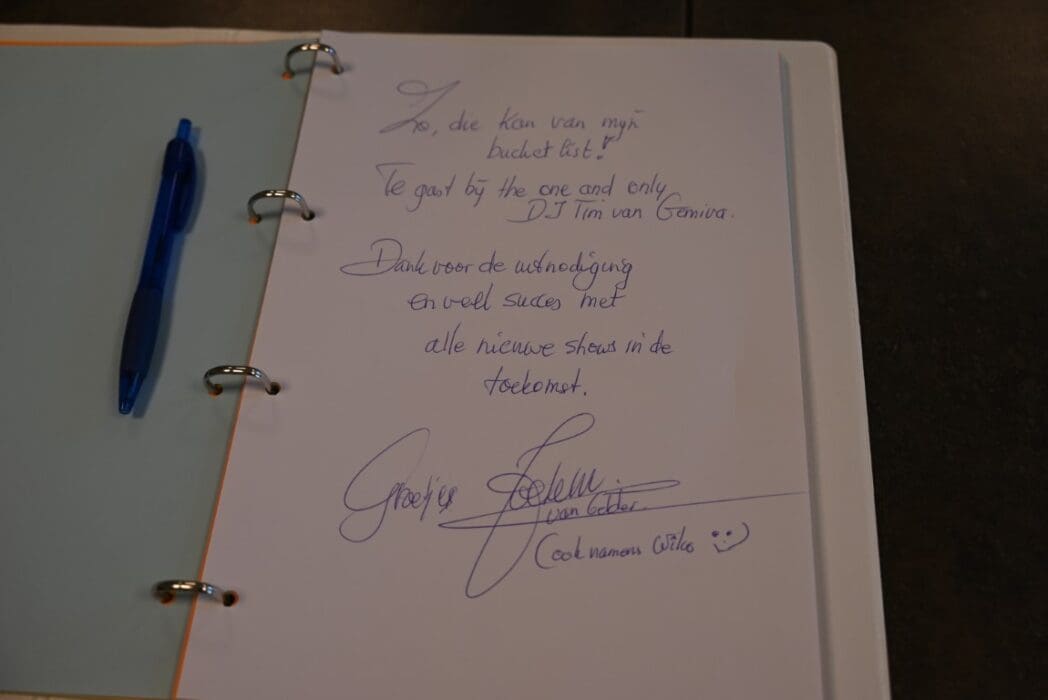 Zo, die kan van mijn
bucket list!
Te gast bij the one and only
DJ Tim van Gemiva.
Dank voor de uitnodiging
en veel succes met
alle nieuwe shows in de
toekomst.
Groetjes Jochem
van Gelder.
(ook namens Wilco :)